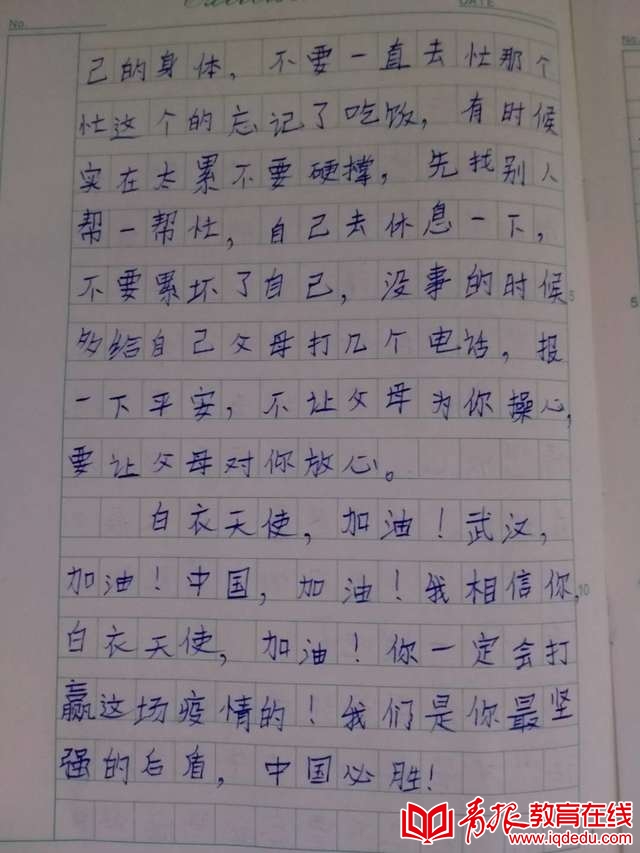 No.
DATE
No.
己的身体，不要一直去忙那个
忙这个的忘记了吃饭，有时候
实在太累不要硬撑，先找别人
帮一帮忙，自己去休息一下，
不要累坏了自己，没事的时候
5
5
多给自己父母打几个电话，报
一下平安，不让父母为你操心，
要让父母对你放心。
白衣天使，加油！武汉，
加油！中国，加油！我相信你，
10
白衣天使，加油！你一定会打
赢这场疫情的！我们是你最坚
强的后盾，中国必胜！
青报教育在线
www.iqdedu.com